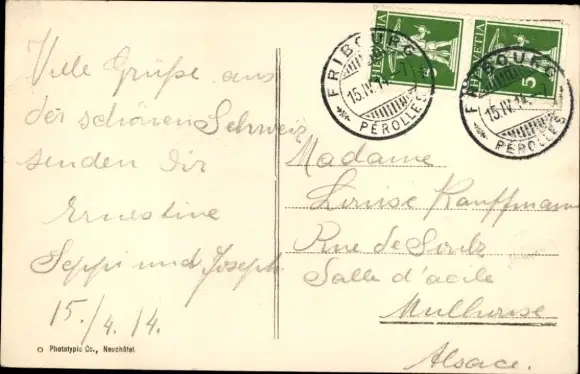 Viele Grüße aus
der schönen Schweiz
senden Dir
Ernestine
Seppi und Joseph
15./4. 14.
Phototypie Co., Neuchâtel
HELVETIA 5
HELVETIA 5
FRIBOURG
15.IV.14.
PÉROLLES
FRIBOURG
15.IV.14.
PÉROLLES
Madame
Louise Kauffmann
Rue de Soultz
Salle d'acile
Mulhouse
Alsace.